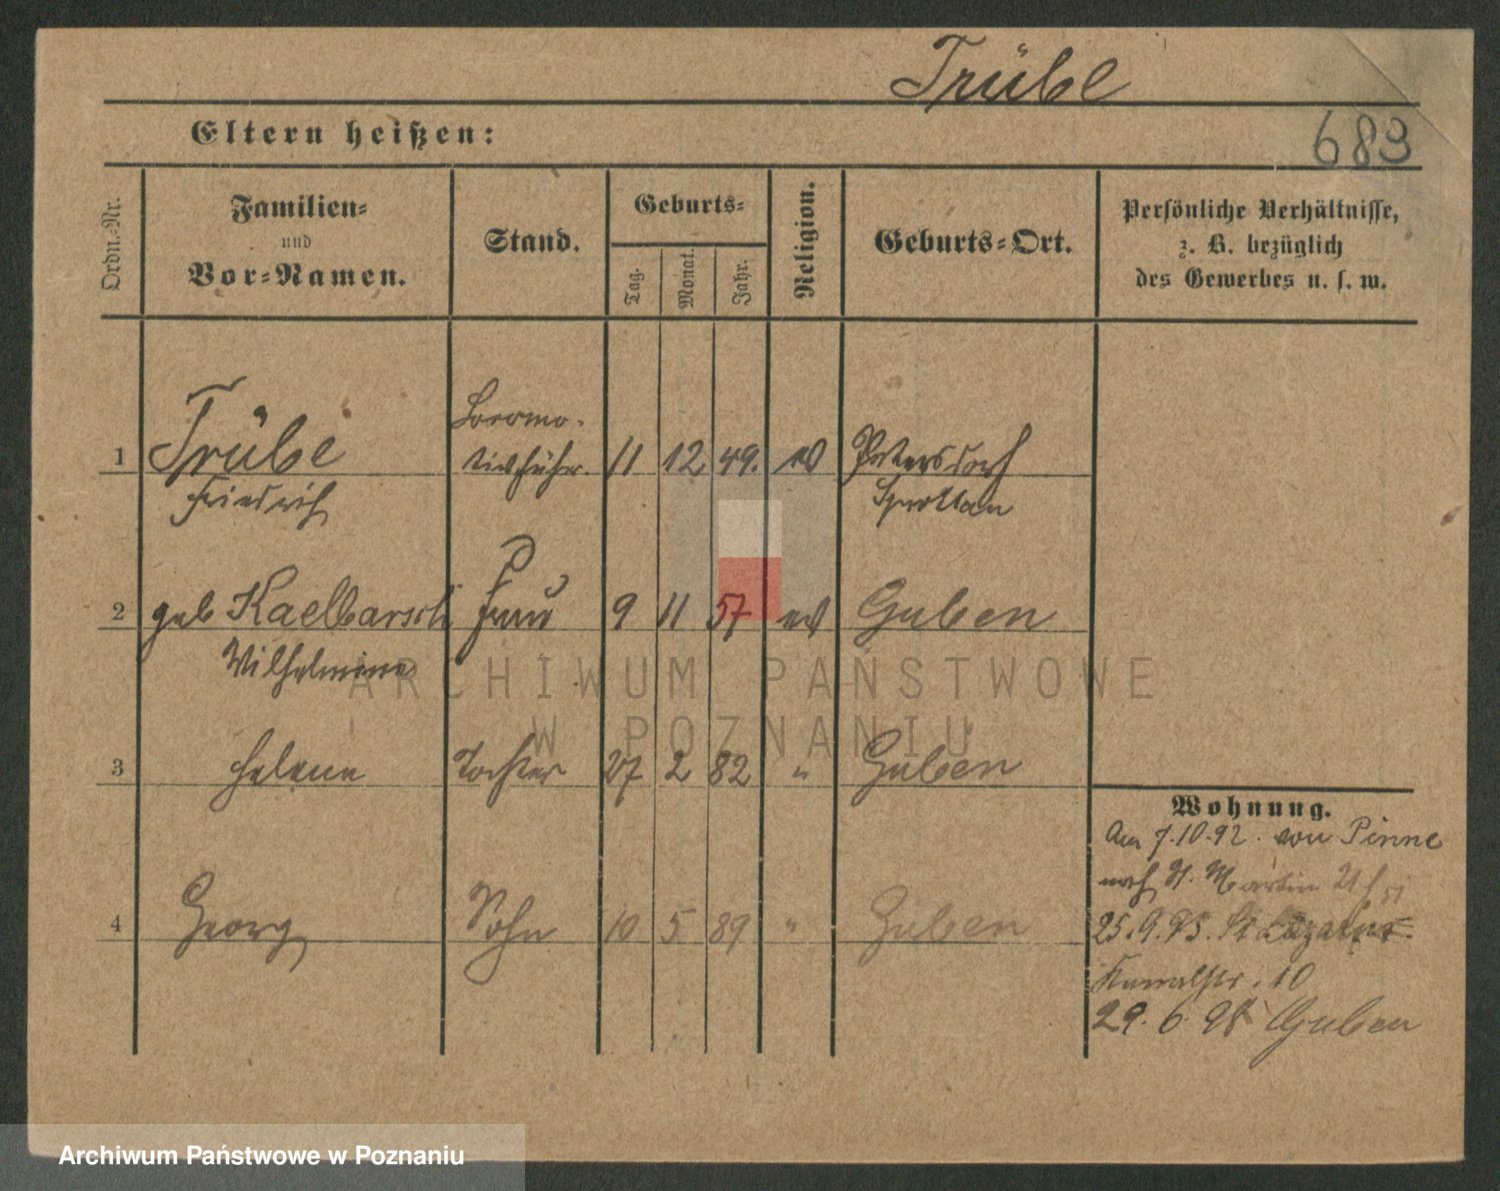 Trübe
Eltern heißen:
683
Ordn.-Nr.
Familien-
und
Vor-Namen.
Stand.
Geburts-
Tag.
Monat.
Jahr.
Religion.
Geburts-Ort.
Persönliche Verhältnisse,
z. B. bezüglich
des Gewerbes u. s. w.
Locomo-
1 Trübe tivführer. 11 12 49. ev Petersdorf
Friedrich Sprottau
2 geb Kaelbarsch Frau 9 11 57 ev Guben
Wilhelmine
3 Helene Tochter 27 2 82 " Guben
4 Georg Sohn 10 5 89 " Guben
Wohnung.
Am 7.10.92. von Pinne
nach St. Martin
25.9.95. St Lazarus
Kanalstr. 10
29.6.98 Guben
ARCHIWUM PAŃSTWOWE
W POZNANIU
Archiwum Państwowe w Poznaniu